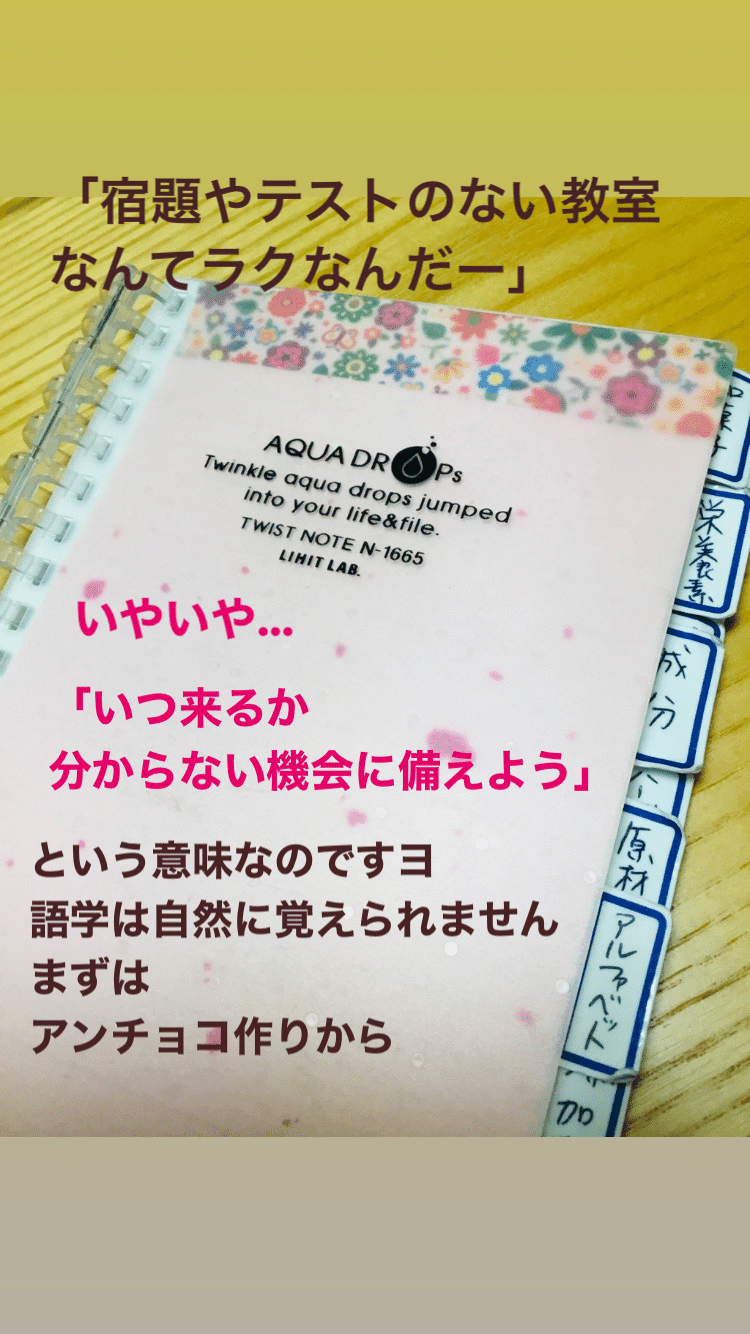 「宿題やテストのない教室
なんてラクなんだー」
AQUA DROPs
Twinkle aqua drops jumped
into your life&file.
TWIST NOTE N-1665
LIHIT LAB.
いやいや...
「いつ来るか
分からない機会に備えよう」
という意味なのですヨ
語学は自然に覚えられません
まずは
アンチョコ作りから
栄養素
成分
原材
アルファベット
加